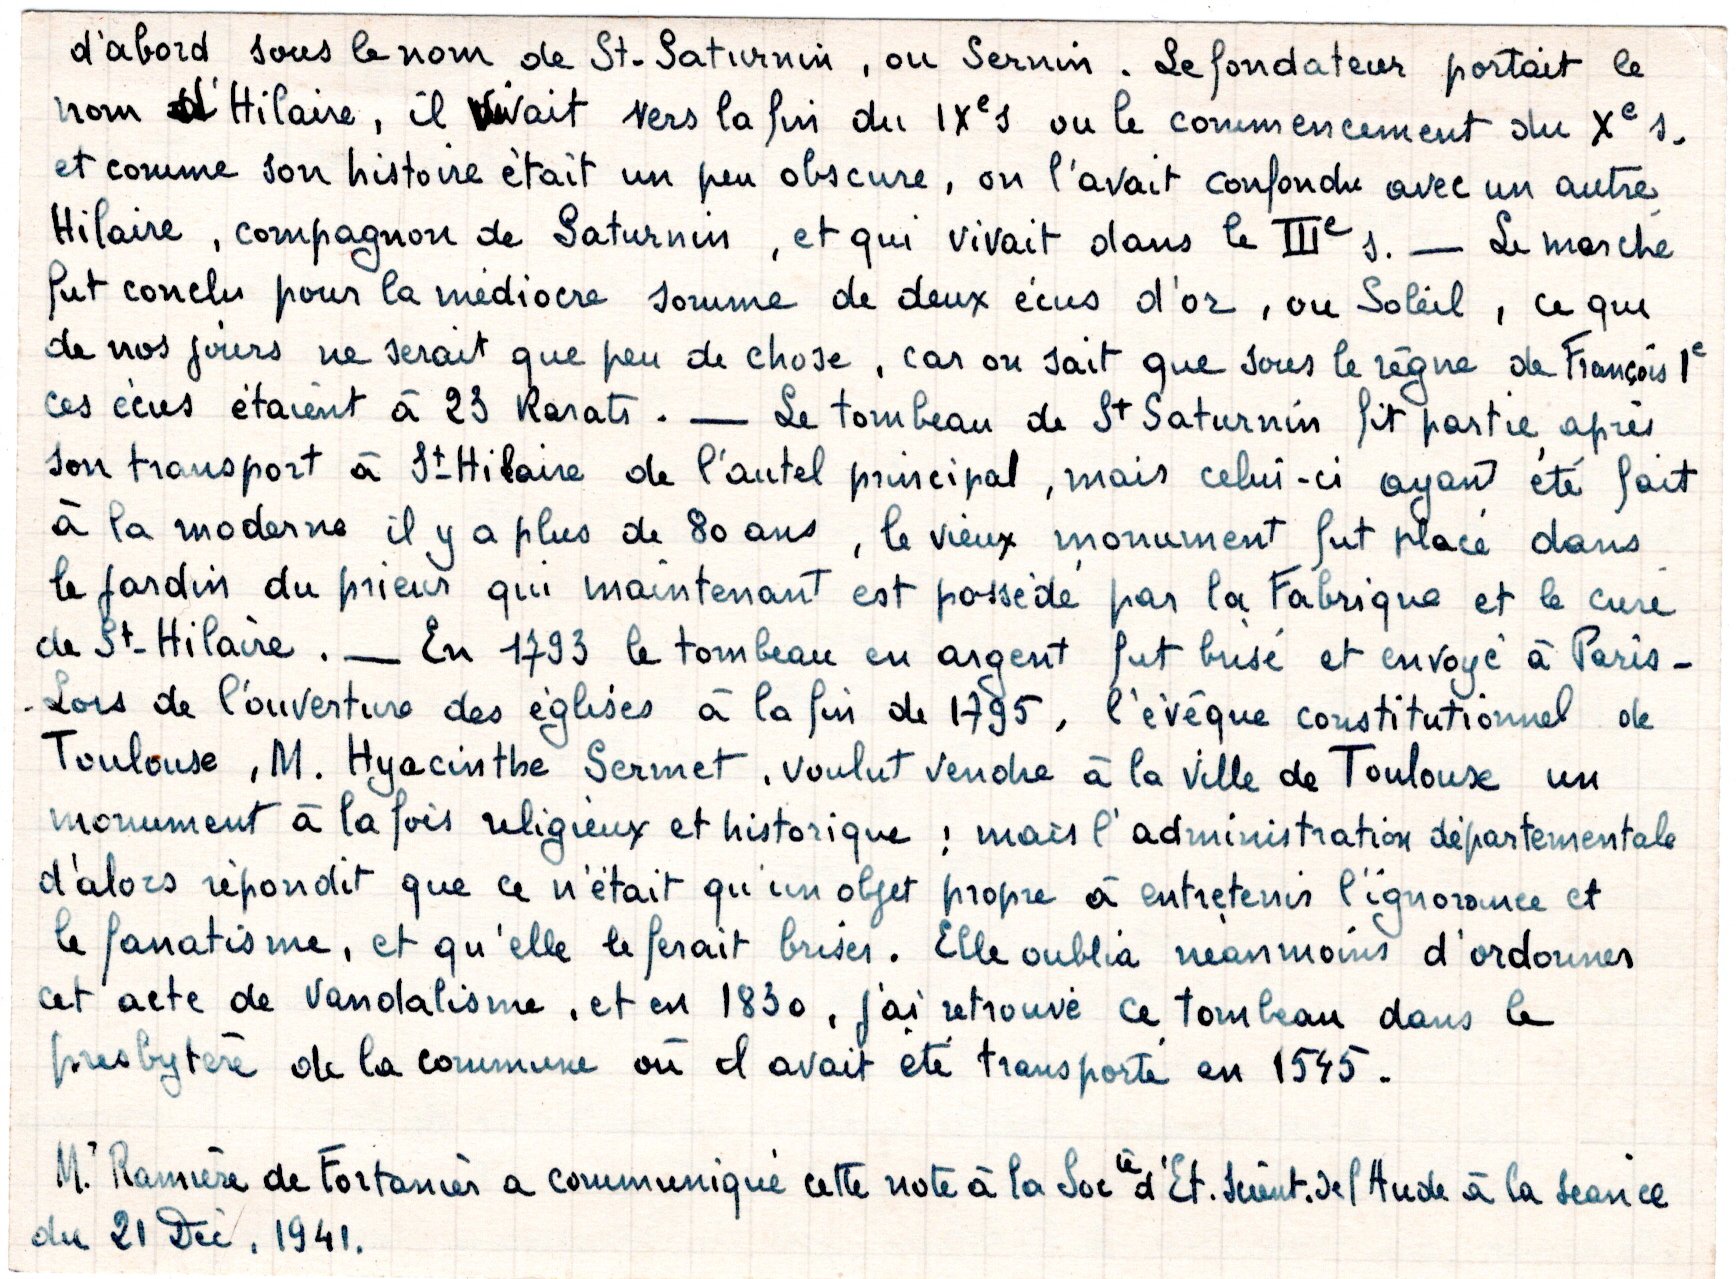 d'abord sous le nom de St-Saturnin, ou Sernin. Le fondateur portait le
nom d'Hilaire, il vivait vers la fin du IXe s ou le commencement du Xe s.
et comme son histoire était un peu obscure, on l'avait confondu avec un autre
Hilaire, compagnon de Saturnin, et qui vivait dans le IIIe s. — Le marché
fut conclu pour la médiocre somme de deux écus d'or, ou Soleil, ce qui
de nos jours ne serait que peu de chose, car on sait que sous le règne de François Ie
ces écus étaient à 23 Karats. — Le tombeau de St Saturnin fit partie après
son transport à St-Hilaire de l'autel principal, mais celui-ci ayant été fait
à la moderne il y a plus de 80 ans, le vieux monument fut placé dans
le jardin du prieur qui maintenant est possédé par la Fabrique et le curé
de St-Hilaire. — En 1793 le tombeau en argent fut brisé et envoyé à Paris -
Lors de l'ouverture des églises à la fin de 1795, l'évêque constitutionnel de
Toulouse, M. Hyacinthe Sermet, voulut vendre à la Ville de Toulouse un
monument à la fois religieux et historique ; mais l'administration départementale
d'alors répondit que ce n'était qu'un objet propre à entretenir l'ignorance et
le fanatisme, et qu'elle le ferait briser. Elle oublia néanmoins d'ordonner
cet acte de vandalisme, et en 1830, j'ai retrouvé ce tombeau dans le
presbytère de la commune où il avait été transporté en 1545.
Mr Ramière de Fortanier a communiqué cette note à la Socté d'Et. Scient. de l'Aude à la séance
du 21 Déc. 1941.